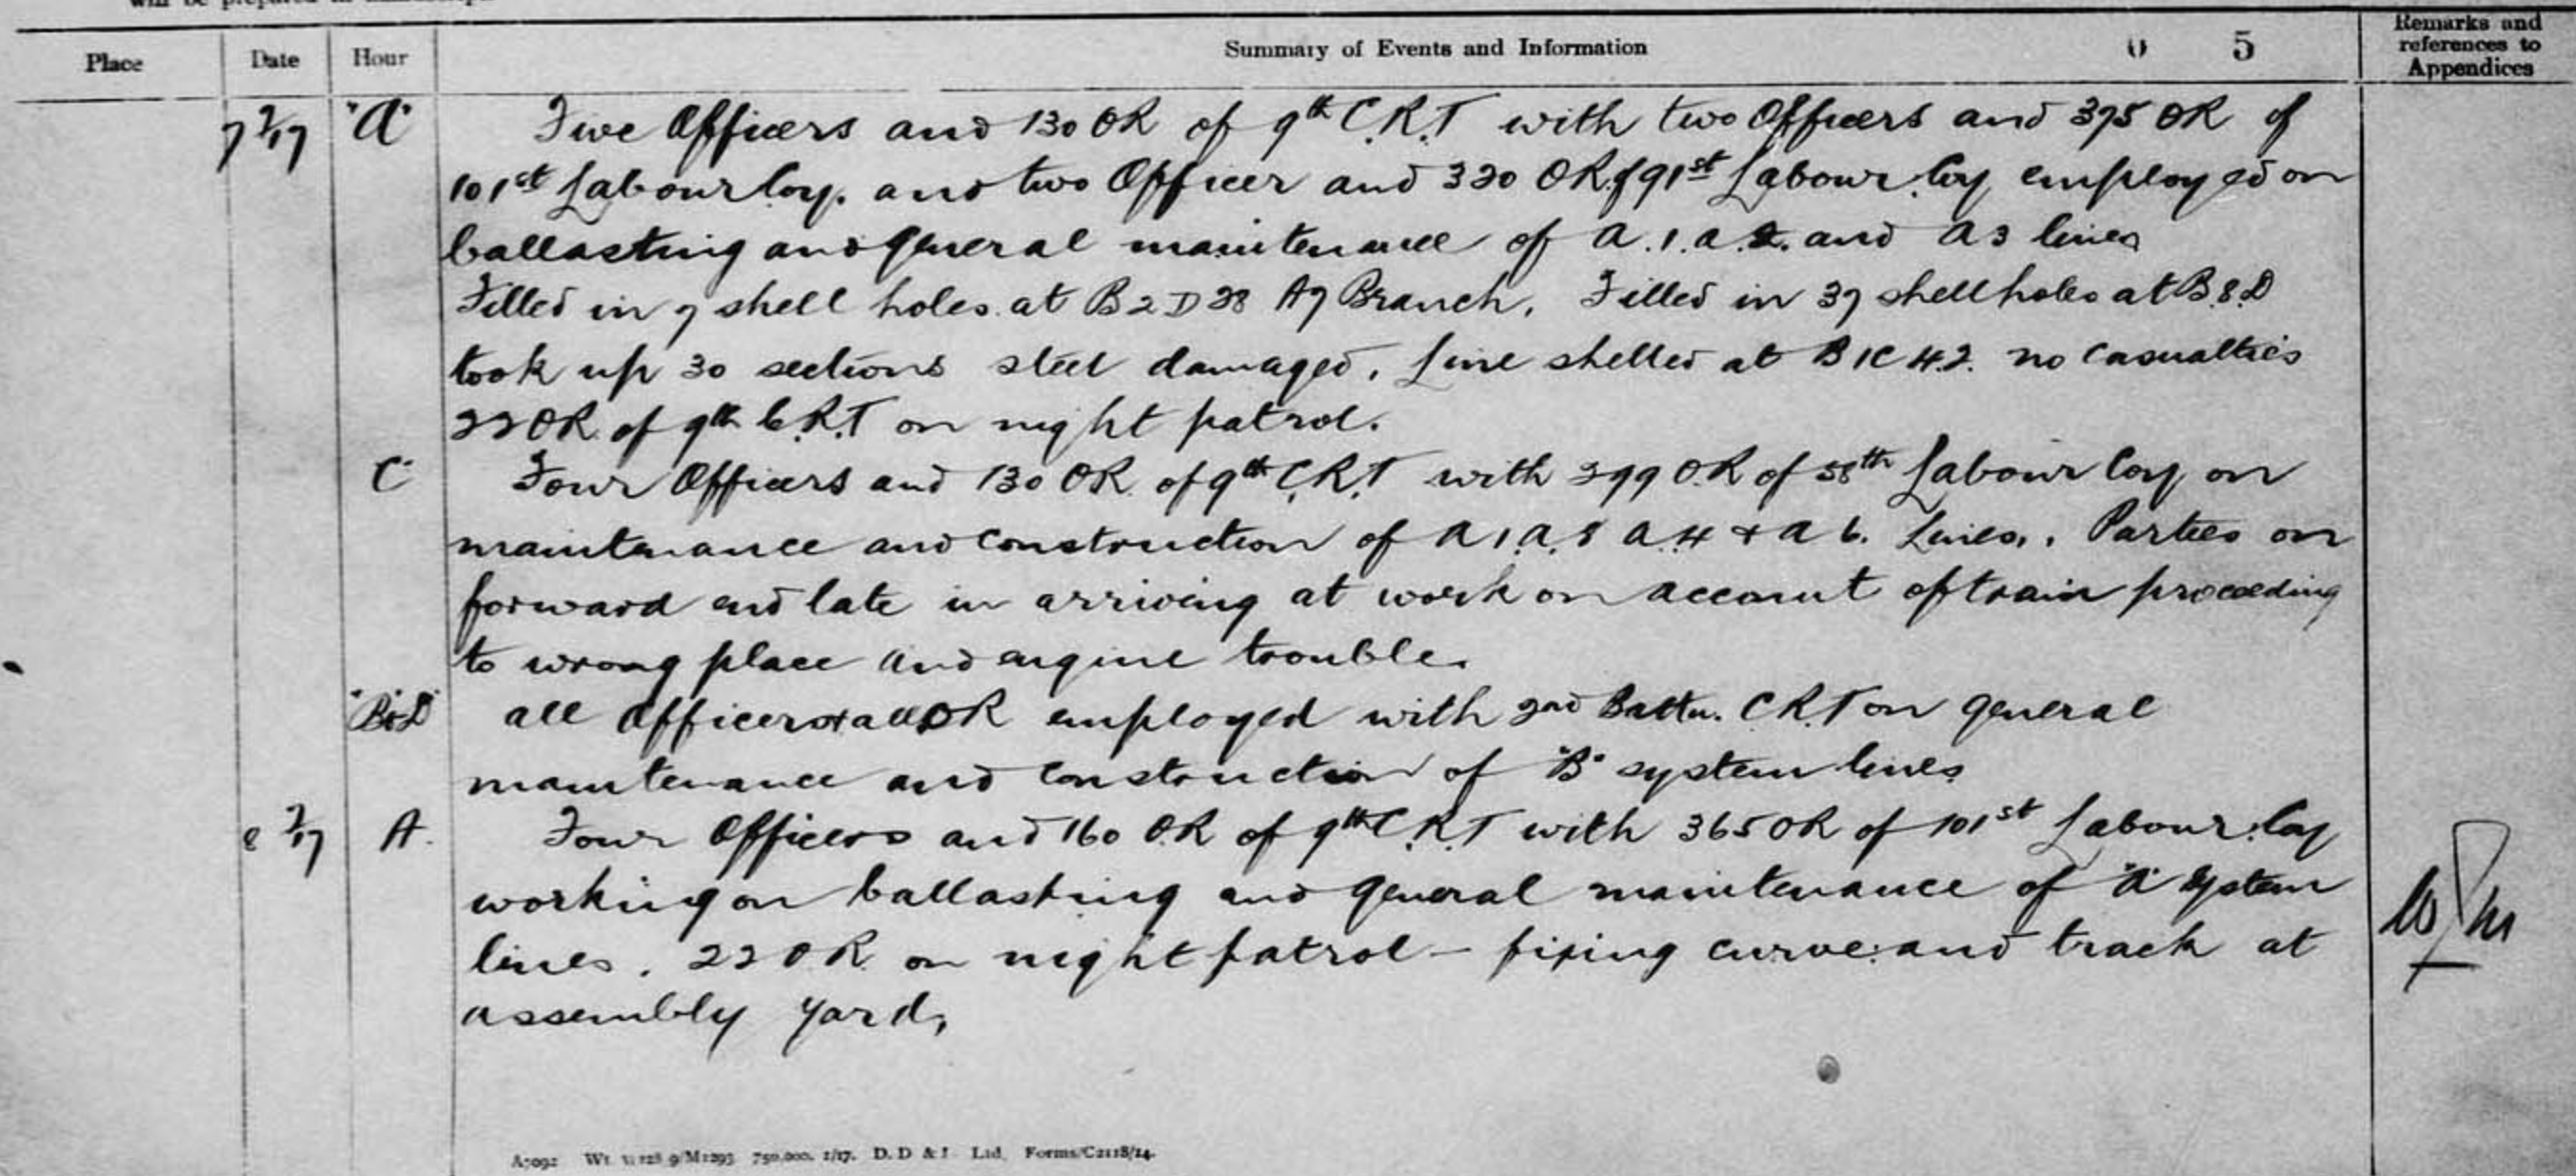 Place Date Hour Summary of Events and Information 0 5 Remarks and references to Appendices
7 7/17 "A" Five Officers and 130 OR of 9th C.R.T with two Officers and 375 OR of
101st Labour Coy. and two Officer and 320 OR. of 91st Labour Coy employed on
ballasting and general maintenance of A.1.A.2. and A3 lines
Filled in 7 shell holes at B2D38 A7 Branch. Filled in 37 shell holes at B.8.D
took up 30 sections steel damaged. Line shelled at B1C4.2. no casualties
22 OR. of 9th C.R.T on night patrol.
C Four Officers and 130 OR. of 9th C.R.T with 399 O.R of 58th Labour Coy on
maintenance and construction of A1.A.8 A.4 + A 6. Lines. Parties on
forward end late in arriving at work on account of train proceeding
to wrong place and engine trouble.
"B+D" all officers + all OR employed with 2nd Battn. C.R.T on general
maintenance and construction of "B" system lines
8 7/17 A. Four Officers and 160 O.R of 9th C.R.T with 365 OR of 101st Labour Coy
working on ballasting and general maintenance of "A" system
lines. 22 OR. on night patrol – fixing curve and track at
assembly yard.
D. D & L Ltd. Forms/C2118/14.